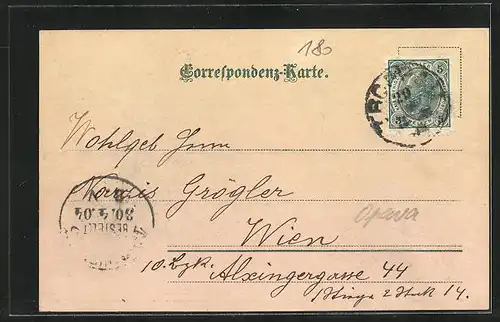 180
Correspondenz-Karte.
Wohlgeb Herrn
Grögler
Opava
BESTELLT
30.4.04
Wien
10. Bzk. Alxingergasse 44
2 Stock 14.